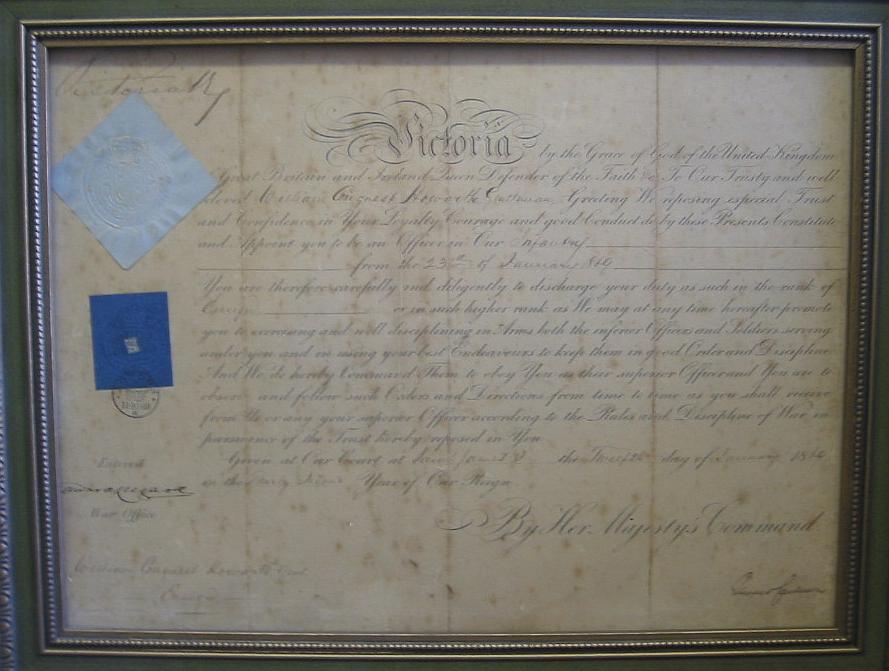 Victoria R
Victoria by the Grace of God of the United Kingdom
Great Britain and Ireland Queen Defender of the Faith &c To Our Trusty and well
beloved William August Howorth Gentleman Greeting We reposing especial Trust
and Confidence in Your Loyalty Courage and good Conduct do by these Presents Constitute
and Appoint you to be an Officer in Our Infantry
from the 23rd of January
You are therefore carefully and diligently to discharge your duty as such in the rank of
Ensign or in such higher rank as We may at any time hereafter promote
you to exercising and well disciplining in Arms both the inferior Officers and Soldiers serving
under you and in using your best Endeavours to keep them in good Order and Discipline
And We do hereby Command Them to obey You as their superior Officer and You are to
observe and follow such Orders and Directions from time to time as you shall receive
from Us or any your superior Officer according to the Rules and Discipline of War in
pursuance of the Trust hereby reposed in You
Given at Our Court at Saint James's the day of January
in the Year of Our Reign
By Her Majesty's Command
Entered
War Office
William Howorth Gent
Ensign